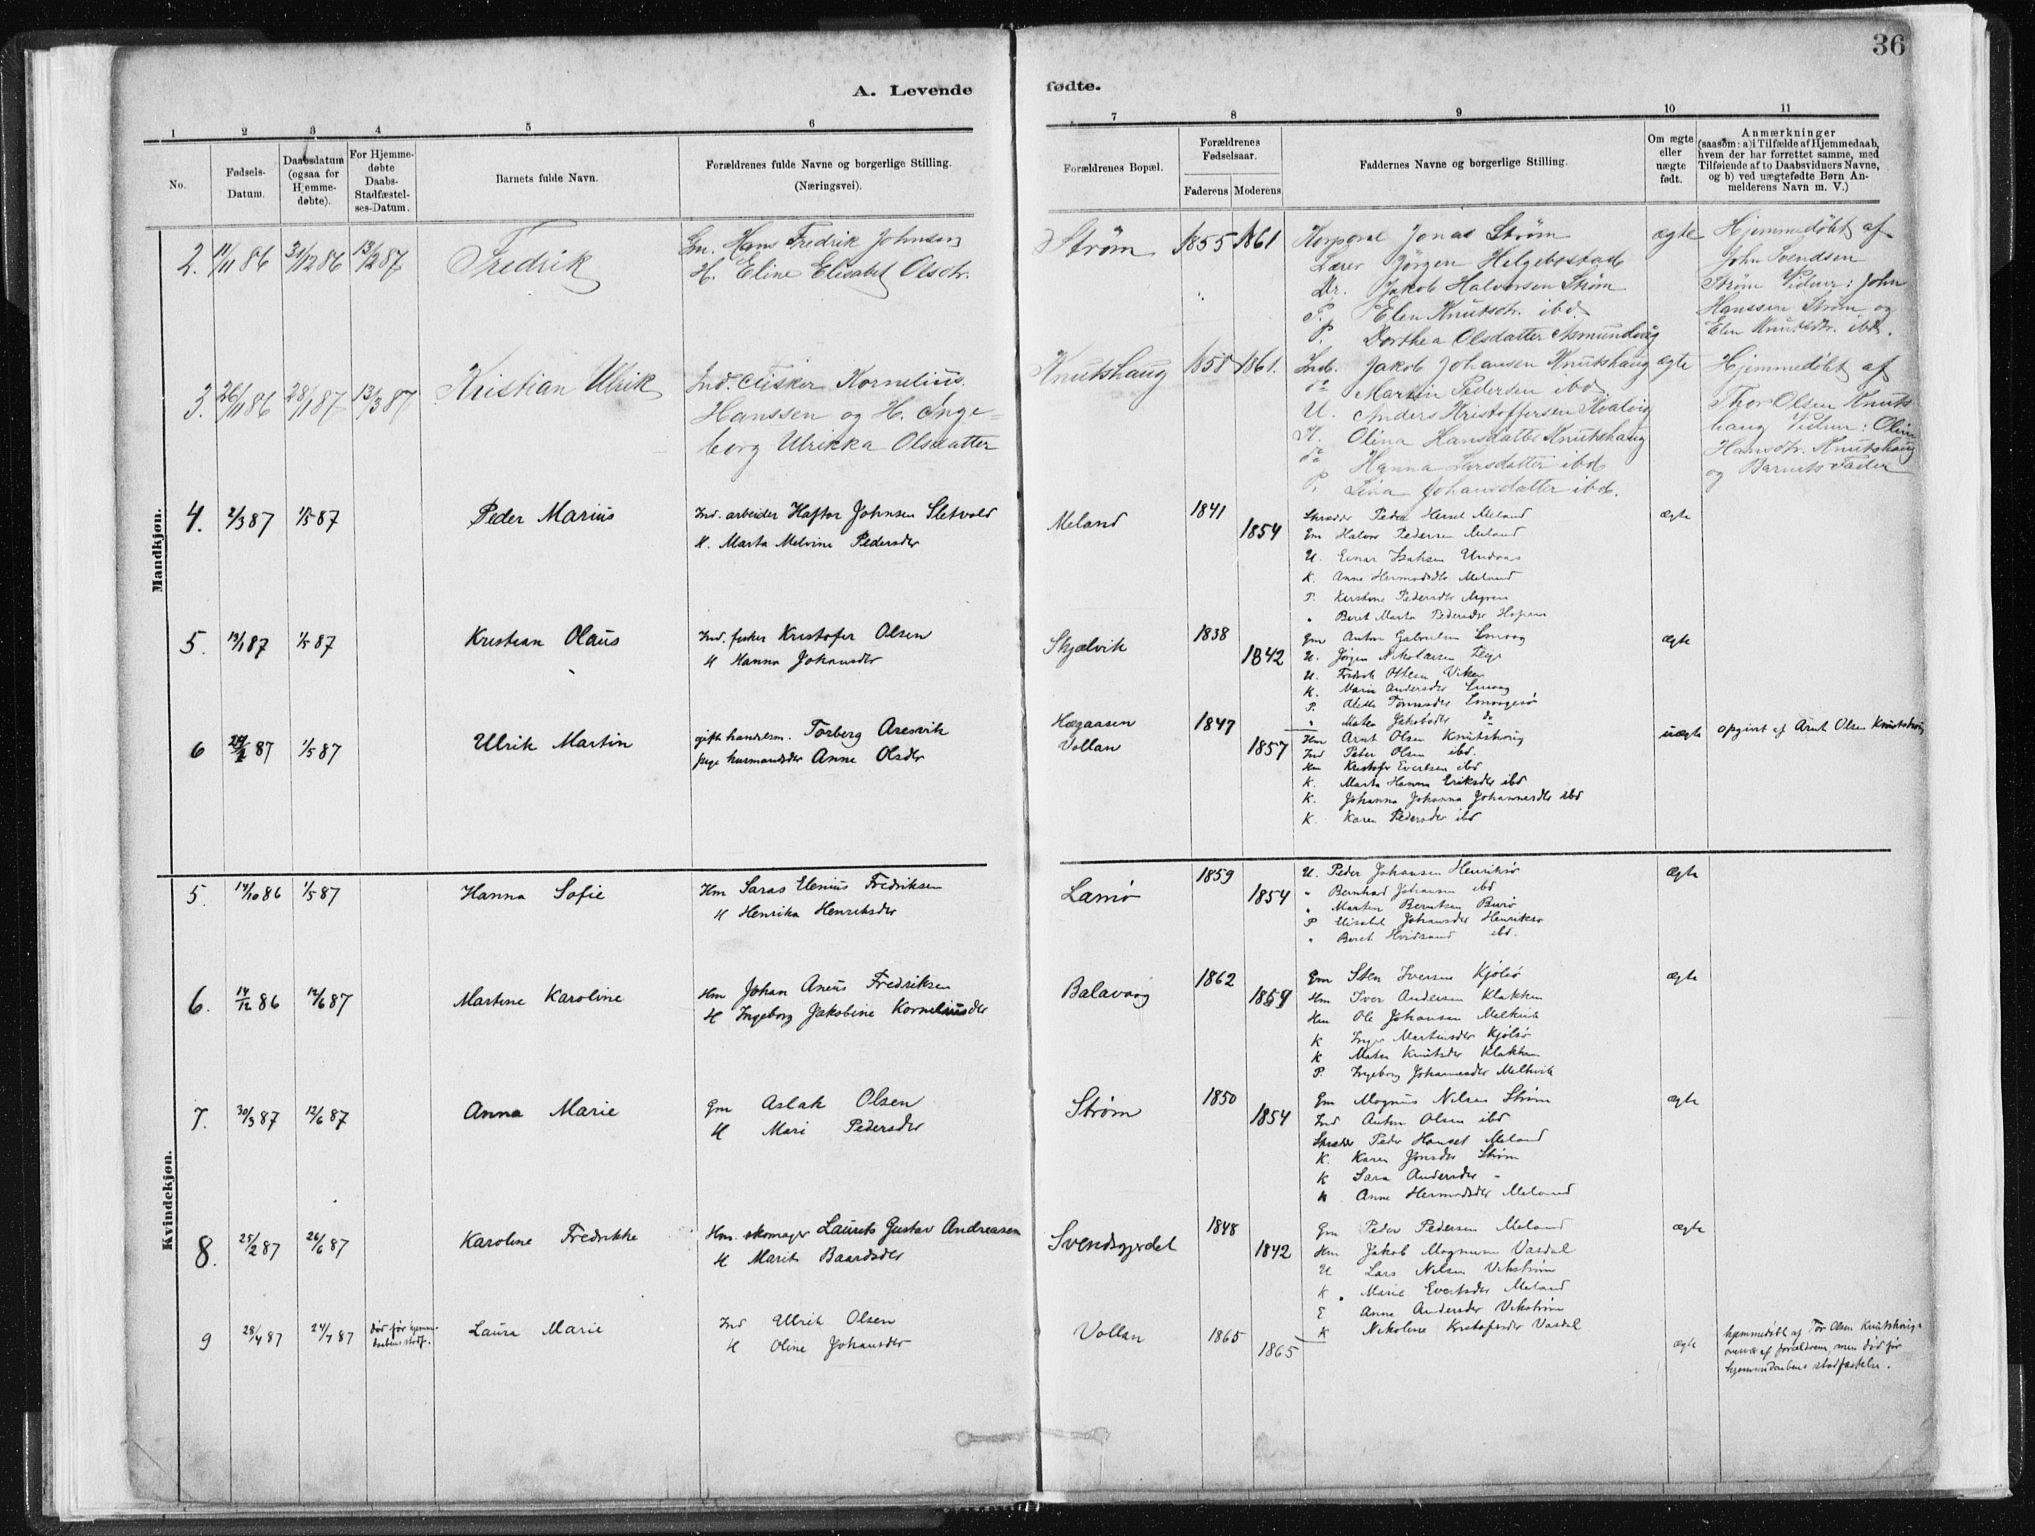 36
A. Levende
fødte.
1 2 3 4 5 6 7 8 9 10 11
No.
Fødsels-Datum.
Daabsdatum (ogsaa for Hjemme-døbte).
For Hjemme-døbte Daabs-Stadfæstel-ses-Datum.
Barnets fulde Navn.
Forældrenes fulde Navne og borgerlige Stilling. (Næringsvei).
Forældrenes Bopæl.
Forældrenes Fødselsaar.
Faderens Moderens
Faddernes Navne og borgerlige Stilling.
Om ægte eller uægte født.
Anmærkninger
(saasom: a) i Tilfælde af Hjemmedaab, hvem der har forrettet samme, med Tilføiende af to Daabsvidners Navne, og b) ved uægtefødte Børn An-melderens Navn m. V.)
Mandkjøn.
2. 11/11 86 31/12 86 13/2 87 Fredrik
Gm. Hans Fredrik Johnsen
H. Eline Elisabet Olsdtr.
Strøm 1855 1861
Korporal Jonas Strøm
Lærer Jørgen Helgebostad
Dr. Jakob Halvorsen Strøm
P. Elen Knutsdtr. ibd.
P. Dorthea Olsdatter Asmundvåg
ægte
Hjemmedøbt af
John Svendsen
Strøm Vidner: John
Hanssen Strøm og
Elen Knutsdtr. ibd.
3. 26/11 86 28/1 87 13/3 87 Kristian Ulrik
Ind. Fisker Kornelius
Hanssen og H. Inge-
borg Ulrikka Olsdatter
Knutshaug 1858 1861.
Ind. Jakob Johansen Knutshaug
do Martin Pedersen ibd
U. Anders Kristoffersen Kvalvig
K. Olina Hansdatter Knutshaug
do Hanna Larsdatter ibd
P. Lina Johansdatter ibd.
ægte
Hjemmedøbt af
Thor Olsen Knuts
haug Vidner: Olina
Hansdtr. Knutshaug
og Barnets Fader
4. 2/3 87 1/5 87 Peder Marius
Ind. arbeider Haftor Johnsen Sletvold
H. Marta Melvine Pedersdtr
Meland 1841 1854
Skrædder Peder Meland
Gm Halvor Pedersen Meland
U. Einar Isaksen Undaas
K. Anne Hermodsdtr Meland
P. Kirstine Pedersdtr
" Beret Marta Pedersdtr
ægte
5. 13/1 87 1/5 87 Kristian Olaus
Ind. fisker Kristofer Olsen
H Hanna Johansdtr
Skjælvik 1838 1842
Gm Anton Smaag
U. Jørgen Nikolaisen
U. Fredrik Ottesen Viken
K. Marie Andersdtr
P.
" Jakobsdtr do
ægte
6 1/5 87 Ulrik Martin
gift handelsm. Torberg Aresvik
pige husmandsdtr Anne Olsdtr
Hægaasen
Vollan
1847 1857
Hm Arnt Olsen Knutshaug
Ind Peter Olsen ibd.
Hm Kristofer Evertsen ibd
K. Marta Hanna Eriksdtr ibd
K. Johanna Johanna Johannesdtr ibd
K. Karen Pedersdtr ibd
uægte opgivet af Arnt Olsen Knutshaug
Kvindekjøn.
5. 14/10 86 1/5 87 Hanna Sofie
Hm Saras Elenius Fredriksen
H Henrika Henriksdtr
Lamø 1859 1854
U. Peder Johansen Henriksø
" Bernhard Johansen ibd
" Martin Berntsen Burø
P Elisabet Johansdtr Henriksø
" Beret Hvidsand ibd.
ægte
6. 14/12 86 12/6 87 Martine Karoline
Hm Johan Aneus Fredriksen
H Ingeborg Jakobine Korneliusdtr
Balavaag 1862 1859
Gm Sten Iversen Kjølsø
Hm Iver Andersen Klakken
Hm Ole Johansen Melkvik
K Inger Martinsdtr Kjølsø
K Maten Knutsdtr Klakken
P. Ingeborg Johannesdtr Melkvik
ægte
7. 30/3 87 12/6 87 Anna Marie
Gm Aslak Olsen
H Mari Pedersdtr
Strøm 1850 1854
Gm Magnus Nilsen Strøm
Ind Anton Olsen ibd
Skrædder Peder Meland
K. Karen Jonsdtr Strøm
K Sara Andersdtr "
K Anne Hermodsdtr Meland
ægte
8. 25/2 87 26/6 87 Karoline Fredrikke
Hm. skomager Laurits Gustav Andreasen
H Marit Baardsdtr
Svendsgjerdet 1848 1842
Gm Peder Pedersen Meland
Hm Jakob Magnusen Vasdal
U Lars Nilsen Vikstrøm
K. Marie Evertsdtr Meland
E Anne Andersdtr Vikstrøm
K Nikoline Kristofersdtr Vasdal
ægte
9 28/4 87 24/7 87 død før hjemme-daabens stadf.
Laura Marie
Ind Ulrik Olsen
H Oline Johansdtr
Vollan 1865 1865
ægte
hjemmedøbt af Tor Olsen Knutshaug
overvær af forældrene, men død før
hjemmedaabens stadfæstelse.